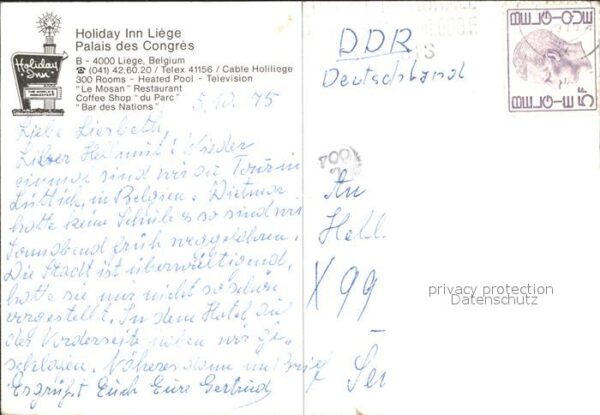 Holiday Inn Liège
Palais des Congrès
B - 4000 Liège, Belgium
☎ (041) 42.60.20 / Telex 41156 / Cable Holiliege
300 Rooms - Heated Pool - Television
"Le Mosan" Restaurant
Coffee Shop "du Parc"
"Bar des Nations"
Holiday
Inn
5.10.75
Liebe Liesbeth,
Lieber Helmut! Wieder
einmal sind wir zu Tour in
Lüttich, in Belgien. Dietmar
hatte keine Schule so sind wir
Sonnabend früh weggefahren.
Die Stadt ist überwältigend,
hatte sie mir nicht so schön
vorgestellt. In dem Hotel auf
der Vorderseite haben wir ge-
schlafen. Näheres dann im Brief
Es grüßt Euch Eure Gertrud
DDR
Deutschland
BELGIQUE
BELGIE 5F
An
X 99
privacy protection
Datenschutz